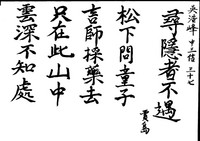 吳 峰 中二信 三十七
尋隱者不遇
賈島
松下問童子
言師採藥去
只在此山中
雲深不知處